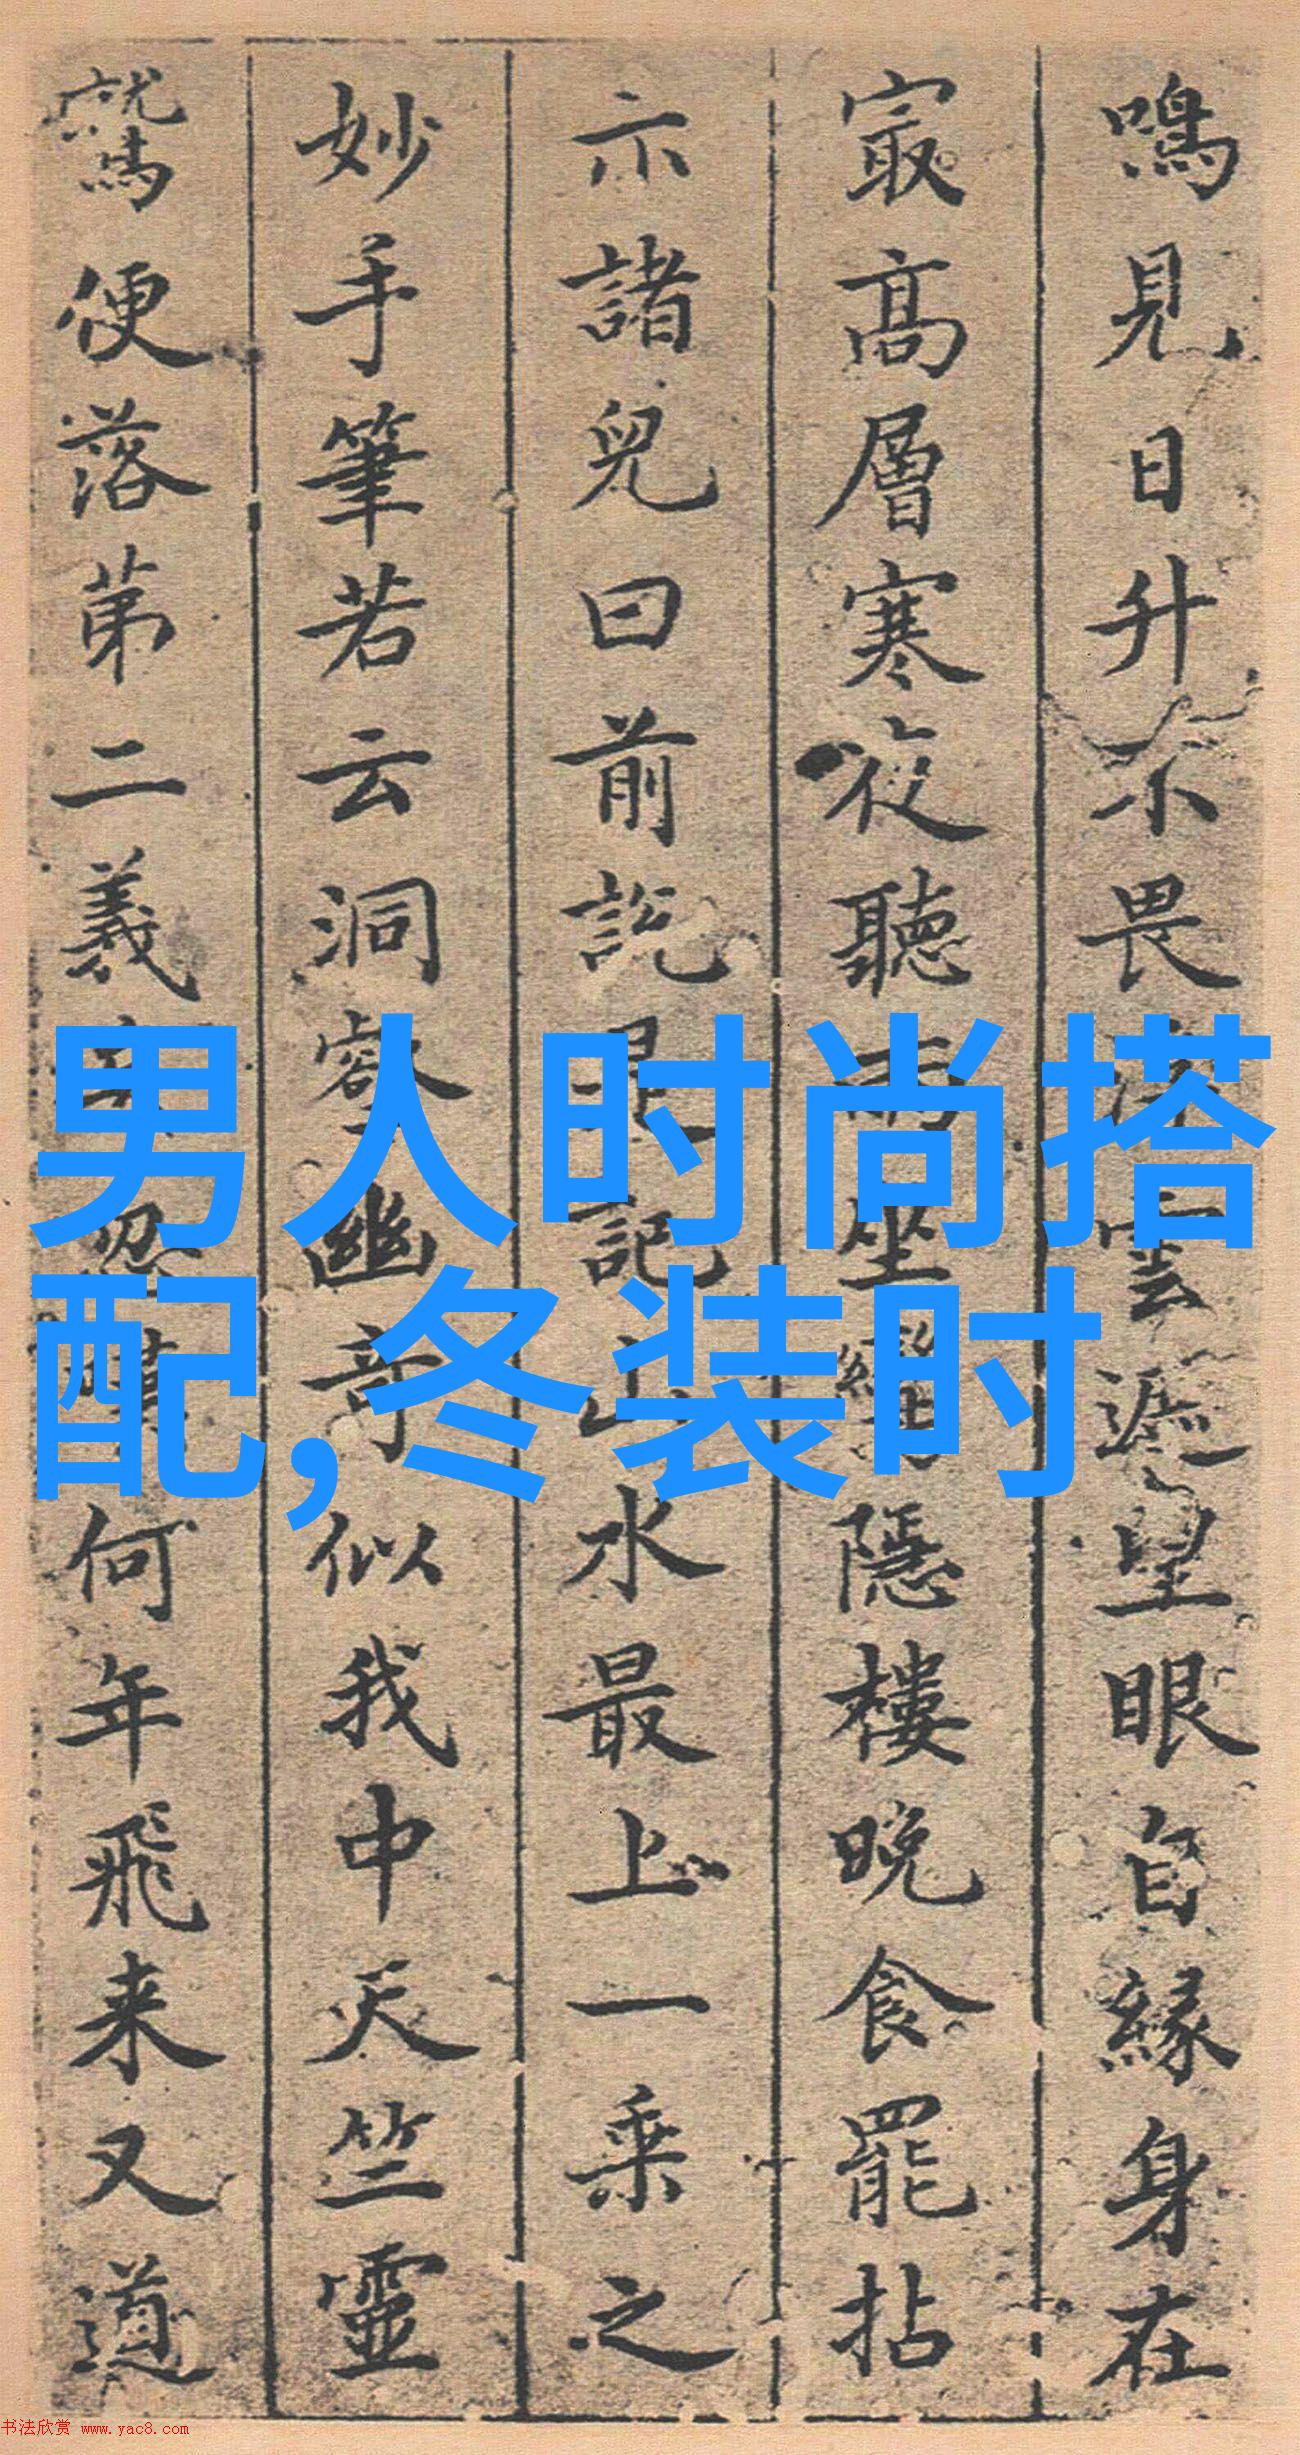 鳴見日升不畏浮雲遮望眼自緣身在
最高層寒夜聽雨坐經隱樓晚食罷拈
示諸兒曰前說是記山水最上一乘之
妙手筆若云洞壑幽奇似我中天竺靈
鷲便落第二義何年飛来又道
男人时尚搭
配,冬装时
书法欣赏 www.yac8.com